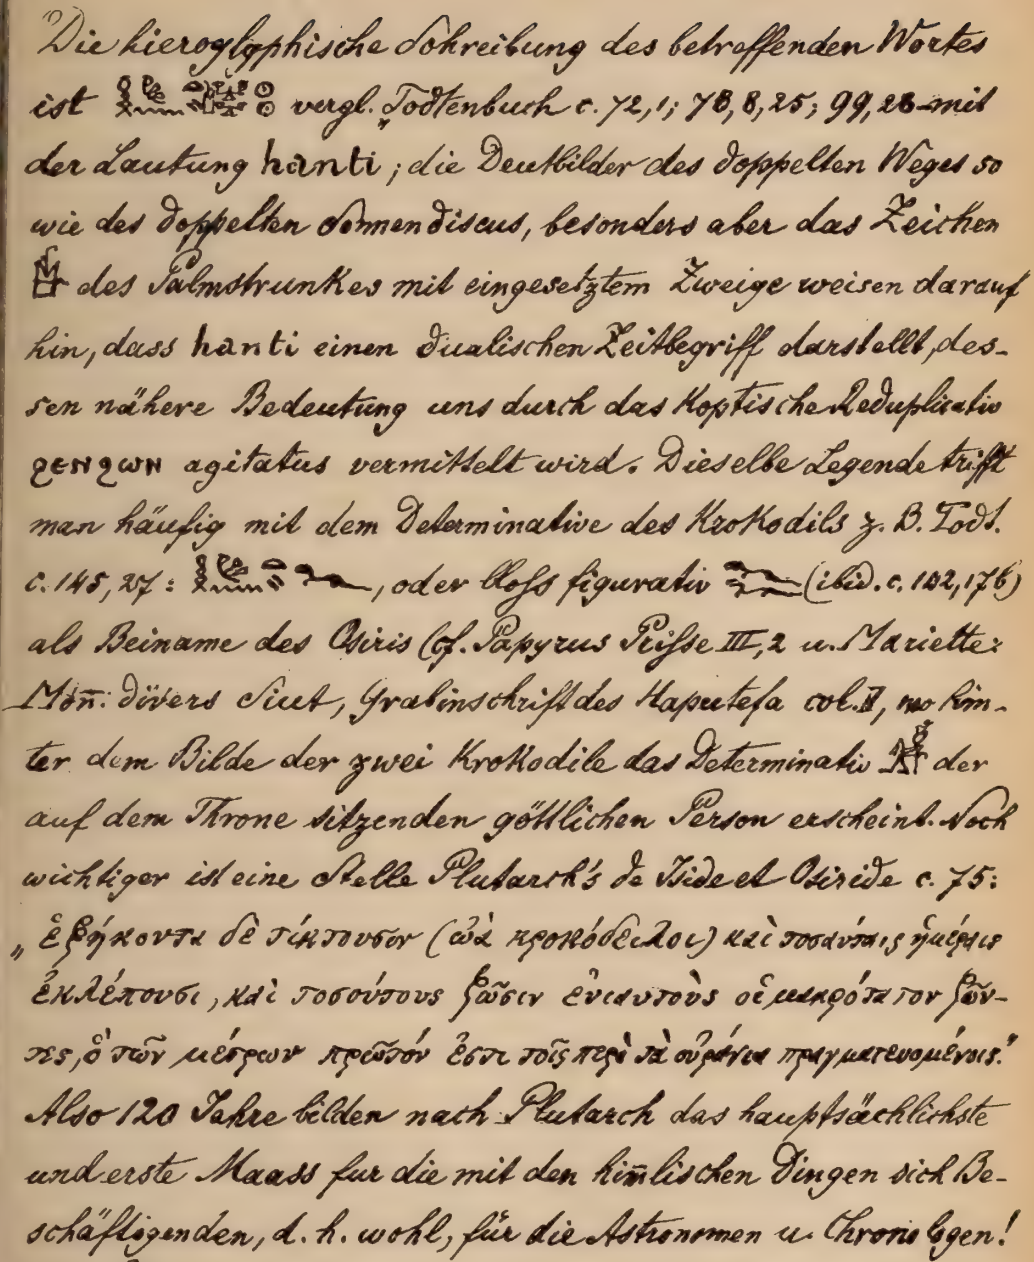 Die hieroglyphische Schreibung des betreffenden Wortes
ist vergl. „Todtenbuch c. 72,1; 78, 8, 25; 99, 28 mit
der Lautung hanti; die Deutbilder des doppelten Weges so
wie des doppelten Sonnendiscus, besonders aber das Zeichen
des Palmstrunkes mit eingesetztem Zweige weisen darauf
hin, dass hanti einen dualischen Zeitbegriff darstellt, des-
sen nähere Bedeutung uns durch das Koptische Reduplicativ
ϩⲉⲛϩⲱⲛ agitatus vermittelt wird. Dieselbe Legende trifft
man häufig mit dem Determinative des Krokodils z. B. Todt.
c. 145, 27: , oder bloss figurativ (ibid. c. 142, 17b)
als Beiname des Osiris (cf. Papyrus Prisse III, 2 u. Mariette:
Mon̄: divers Siut, Grabinschrift des Haputefa col. II, wo hin-
ter dem Bilde der zwei Krokodile das Determinativ der
auf dem Throne sitzenden göttlichen Person erscheint. Noch
wichtiger ist eine Stelle Plutarch's de Iside et Osiride c. 75:
„ἑξήκοντα δὲ τίκτουσιν (ὠὰ κροκόδειλοι) καὶ τοσαύταις ἡμέραις
ἐκλέπουσι, καὶ τοσούτους ζῶσιν ἐνιαυτοὺς οἱ μακρότατον ζῶν-
τες, ὃ τῶν μέτρων πρῶτόν ἐστι τοῖς περὶ τὰ οὐράνια πραγματευομένοις."
Also 120 Jahre bilden nach Plutarch das hauptsächlichste
und erste Maass fur die mit den him̄lischen Dingen sich Be-
schäftigenden, d. h. wohl, für die Astronomen u. Chronologen!